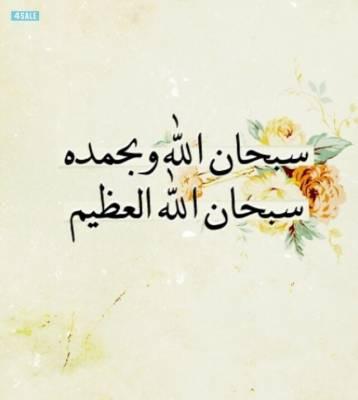 4SALE
سبحان الله وبحمده
سبحان الله العظيم